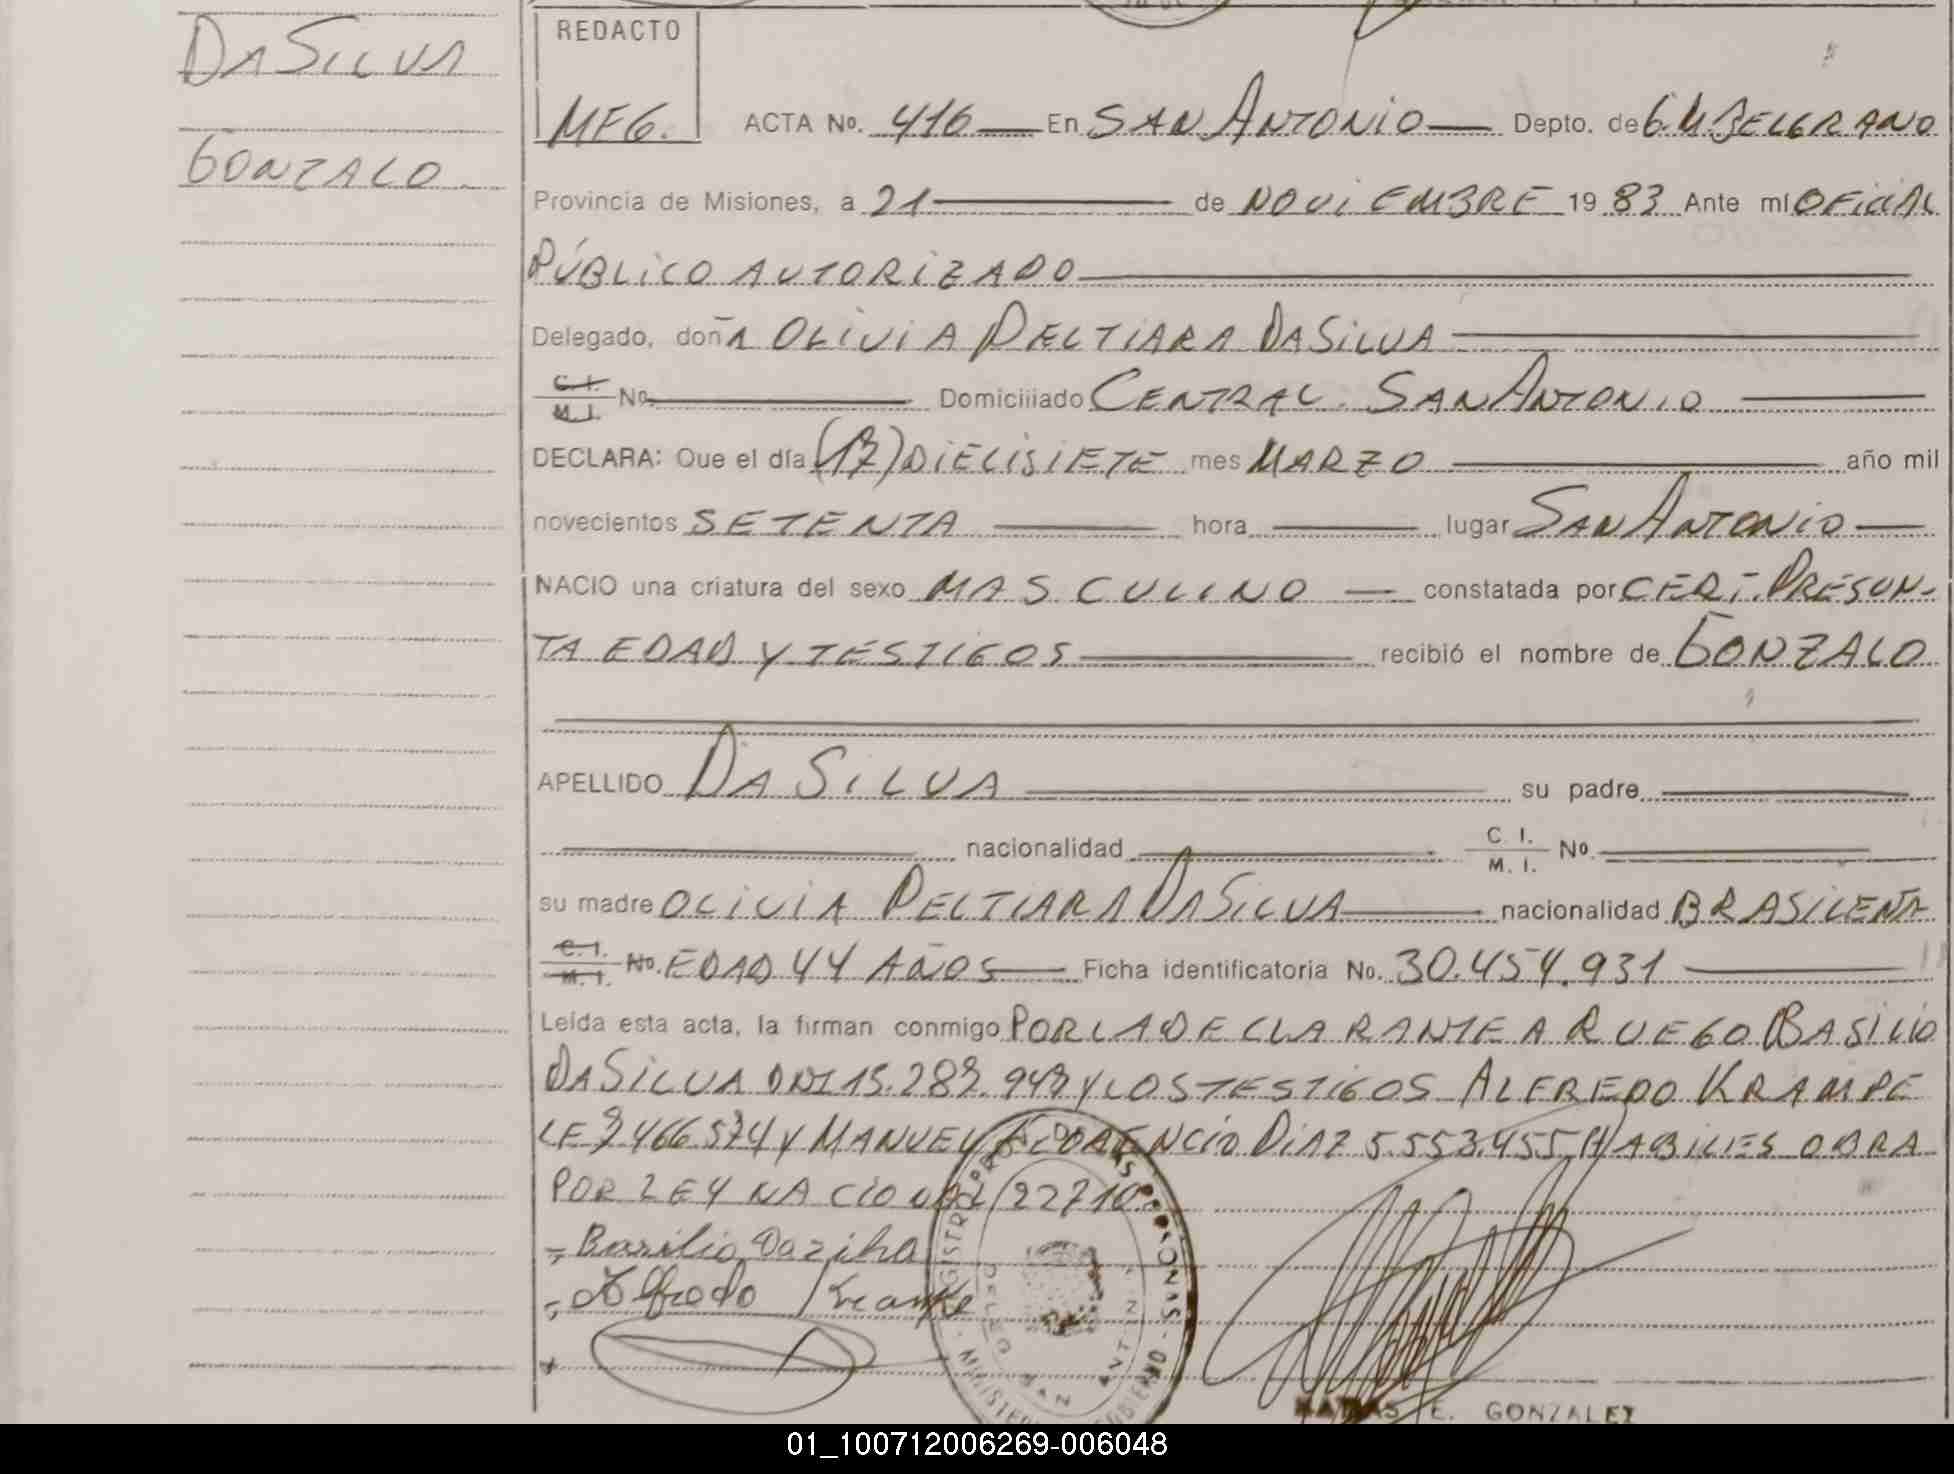 DA SILVA
GONZALO
REDACTO
MFG. ACTA No. 416 En SAN ANTONIO Depto. de G. M. BELGRANO
Provincia de Misiones, a 21 de NOVIEMBRE 19 83 Ante mí OFICIAL
PÚBLICO AUTORIZADO
Delegado, doña OLIVIA PELTIARA DA SILVA
C. I. M. I. No. Domiciliado CENTRAL. SAN ANTONIO
DECLARA: Que el día (17) DIECISIETE mes MARZO año mil
novecientos SETENTA hora lugar SAN ANTONIO
NACIO una criatura del sexo MASCULINO constatada por CERT. PRESUN-
TA EDAD Y TESTIGOS recibió el nombre de GONZALO
APELLIDO DA SILVA su padre
nacionalidad C. I. M. I. No.
su madre OLIVIA PELTIARA DA SILVA nacionalidad BRASILEÑA
C. I. M. I. No. EDAD 44 AÑOS Ficha identificatoria No. 30.454.931
Leída esta acta, la firman conmigo POR LA DECLARANTE A RUEGO BASILIO
DA SILVA DNI 15.287.947 Y LOS TESTIGOS ALFREDO KRAMPE
LE 7.466.574 Y MANUEL FLORENCIO DIAZ 5.553.455 HABILES OBRA
POR LEY NACIONAL 22710.
Basilio Dazilva
Alfredo Krampe
REGISTRO DE LAS PERSONAS
DELEG. SAN ANTONIO
MINISTERIO GOBIERNO
MATIAS E. GONZALEZ
01_100712006269-006048